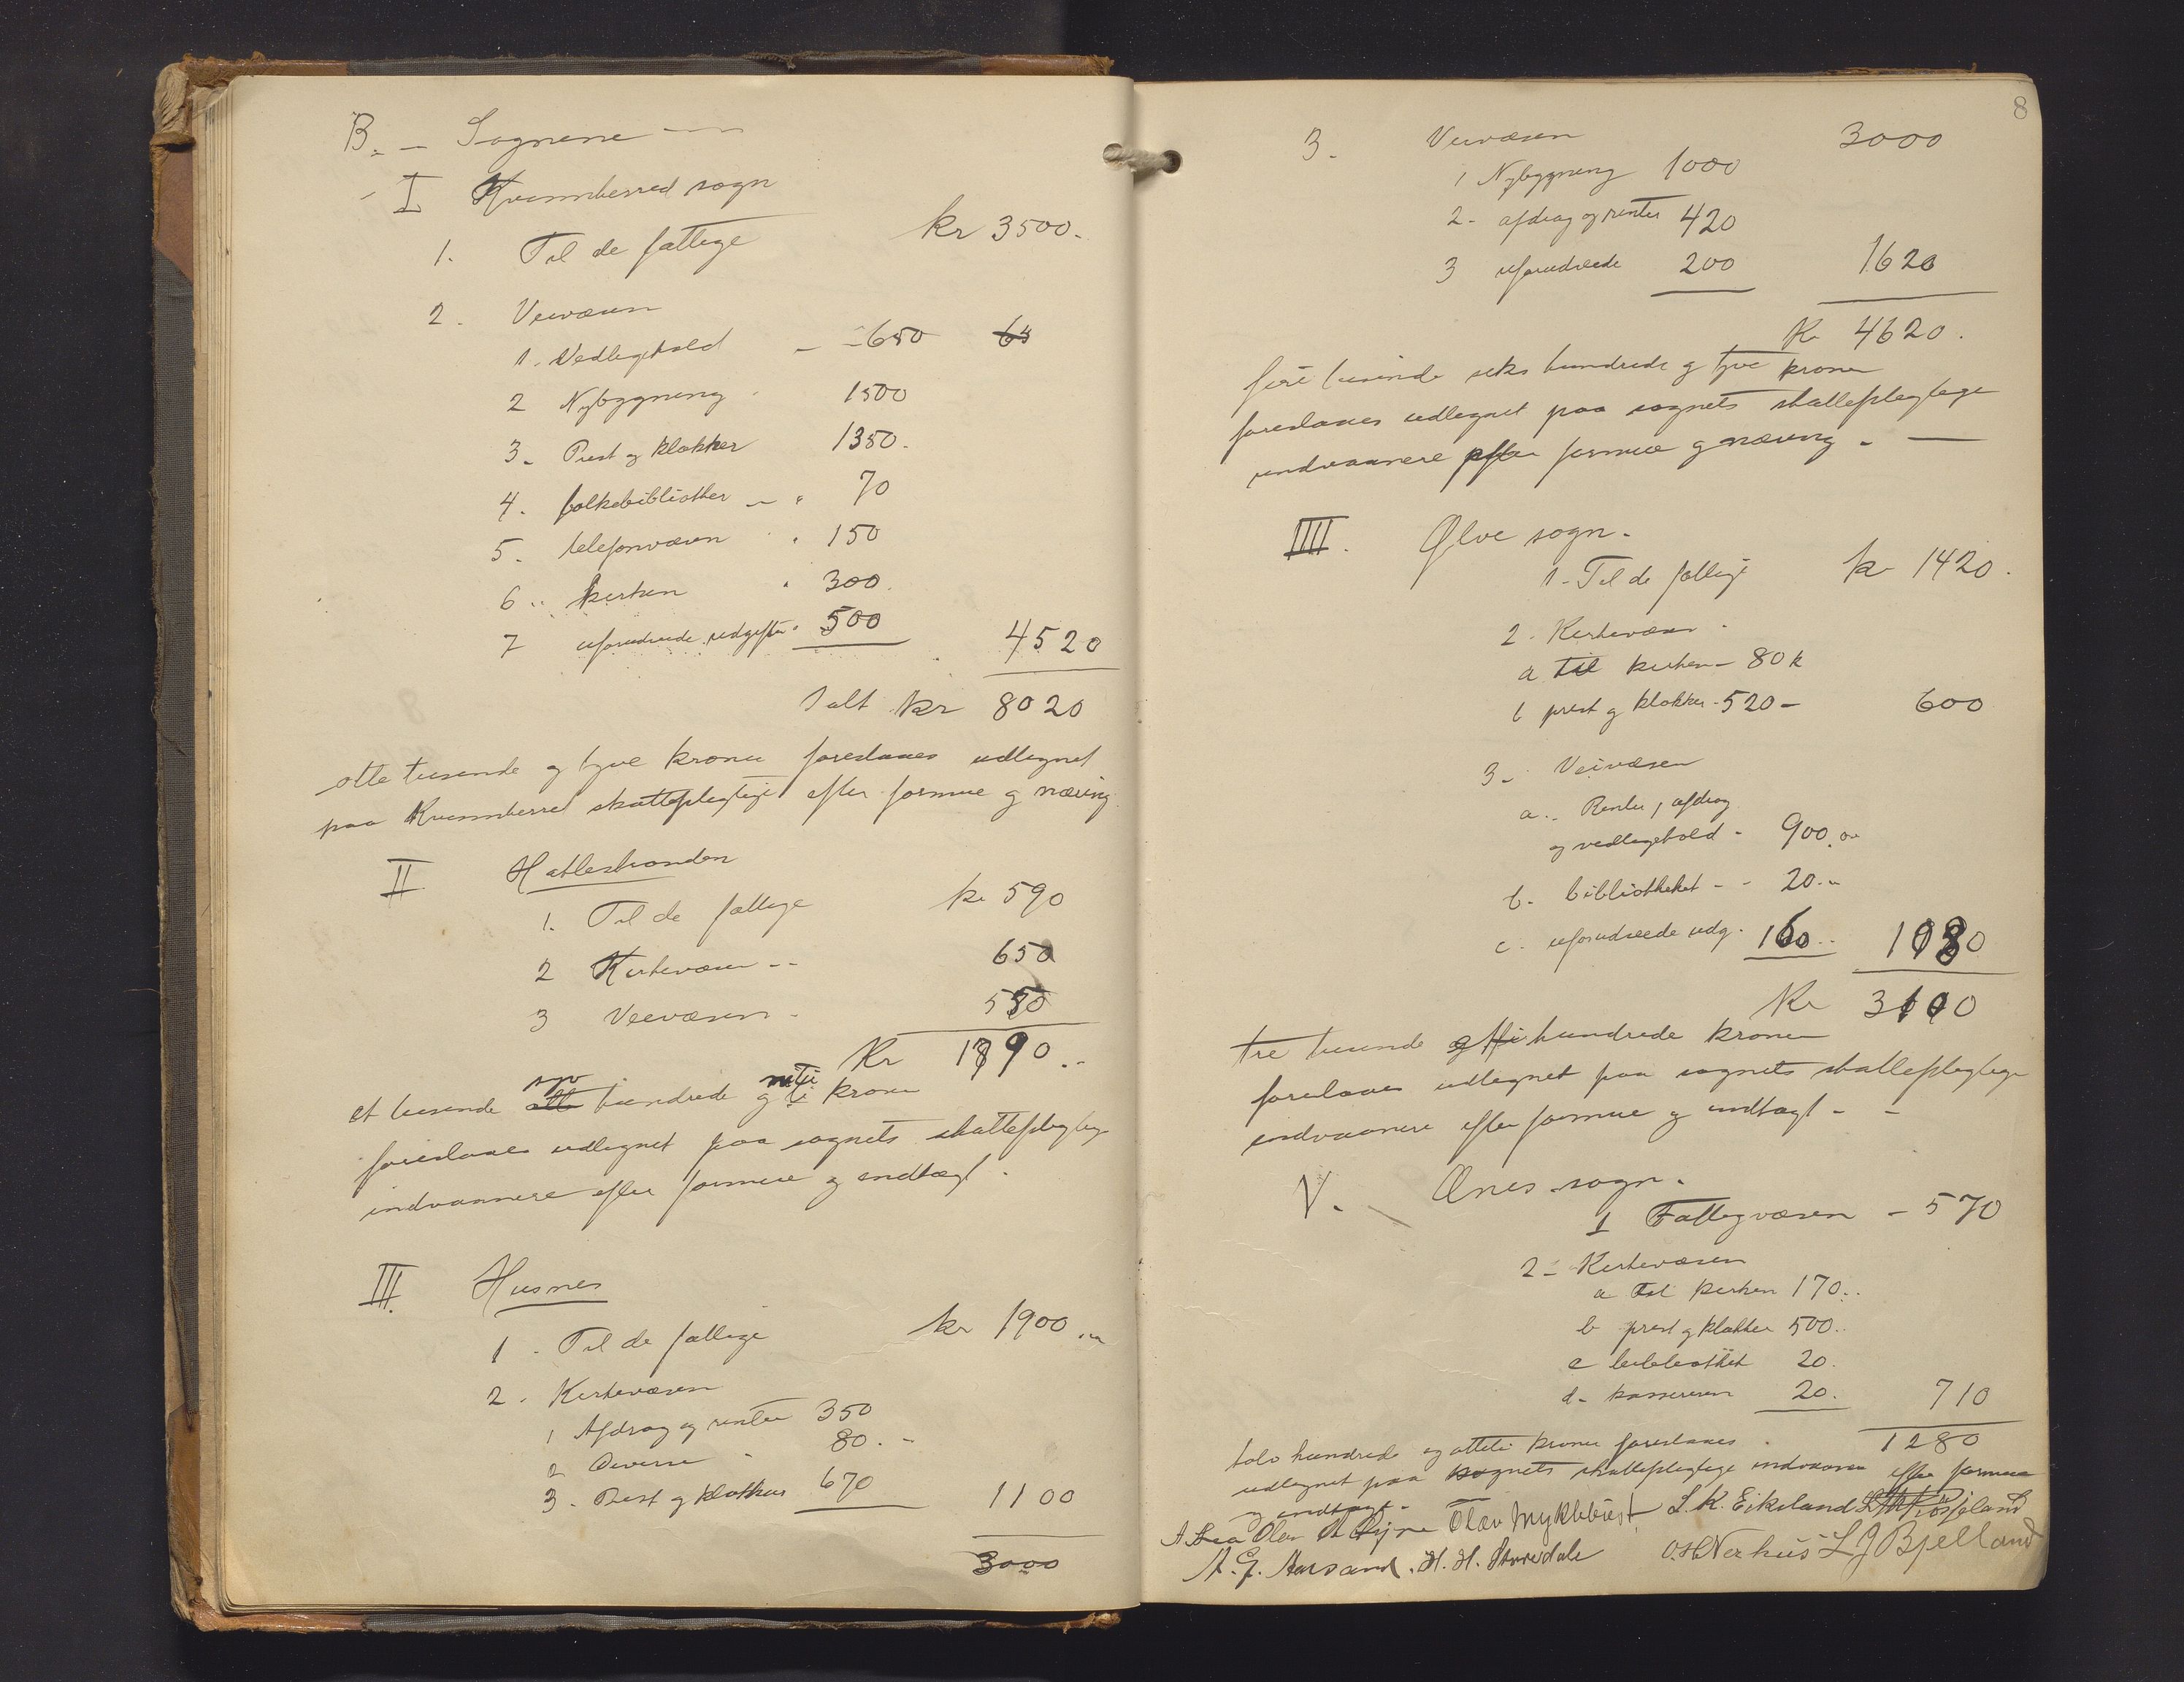 B. - Sognene
I Kvinnherred sogn
1. Til de fattige kr 3500.-
2. Veivæsen
1. Vedligehold - 650 64
2 Nybygning 1500
3. Prest og klokker 1350.
4. folkebibliothek 70
5. telefonvæsen 150
6 kirken 300.
7 uforudseede udgifter 500 4520
Ialt kr 8020
otte tusende og tyve kroner foreslaaes udlignet
paa Kvinnherred skattepligtige efter formue og næring
II Hatlestranden
1. Til de fattige kr 590
2 Kirkevæsen - 650
3 Veivæsen - 550
Kr 1790.-
syv niti
et tusende otte hundrede og ti kroner
foreslaaes udlignet paa sognets skattepligtige
indvaanere efter formue og indtægt.
III Husnes
1. Til de fattige kr 1900
2. Kirkevæsen
1 Afdrag og renter 350
2 Diverse 80.-
3. Prest og klokker 670 1100
3000
8
3. Veivæsen 3000
1 Nybygning 1000
2- afdrag og renter 420
3 uforudseede 200 1620
Kr 4620.
fire tusinde seks hundrede og tyve kroner
foreslaaes udlignet paa sognets skattepligtige
indvaanere efter formue og næring. -
IIII. Ølve sogn.
1- Til de fattige kr 1420.
2. Kirkevæsen.
a til kirken - 80 k
b prest og klokker - 520 - 600
3. Veivæsen
a. Renter, afdrag
og vedligehold - 900.00
b. bibliotheket - - 20.-
c. uforudseede udg. 160.. 1080
Kr 3100
tre tusinde et hundrede kroner
foreslaaes udlignet paa sognets skattepligtige
indvaanere efter formue og indtægt - -
V. Ænes sogn.
1 Fattigvæsen - 570
2- Kirkevæsen
a Til kirken 170..
b prest og klokker 500..
c bibliothek 20.
d- kassereren 20. 710
1280
tolv hundrede og otteti kroner foreslaaes
udlignet paa sognets skattepligtige indvaanere efter formue
og indtægt.
Olav Myklebust L. K. Eikeland
A. G. Aarsand. H. H. Storedale O. H. Nerhus L J Bjelland